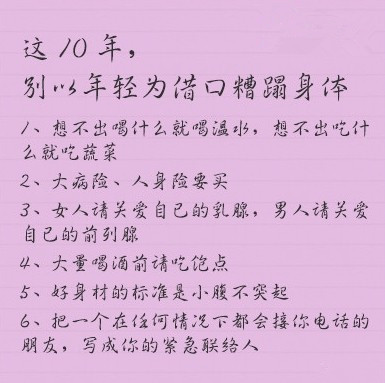 这 10 年，
别以年轻为借口糟蹋身体
1、想不出喝什么就喝温水，想不出吃什
么就吃蔬菜
2、大病险、人身险要买
3、女人请关爱自己的乳腺，男人请关爱
自己的前列腺
4、大量喝酒前请吃饱点
5、好身材的标准是小腹不突起
6、把一个在任何情况下都会接你电话的
朋友，写成你的紧急联络人